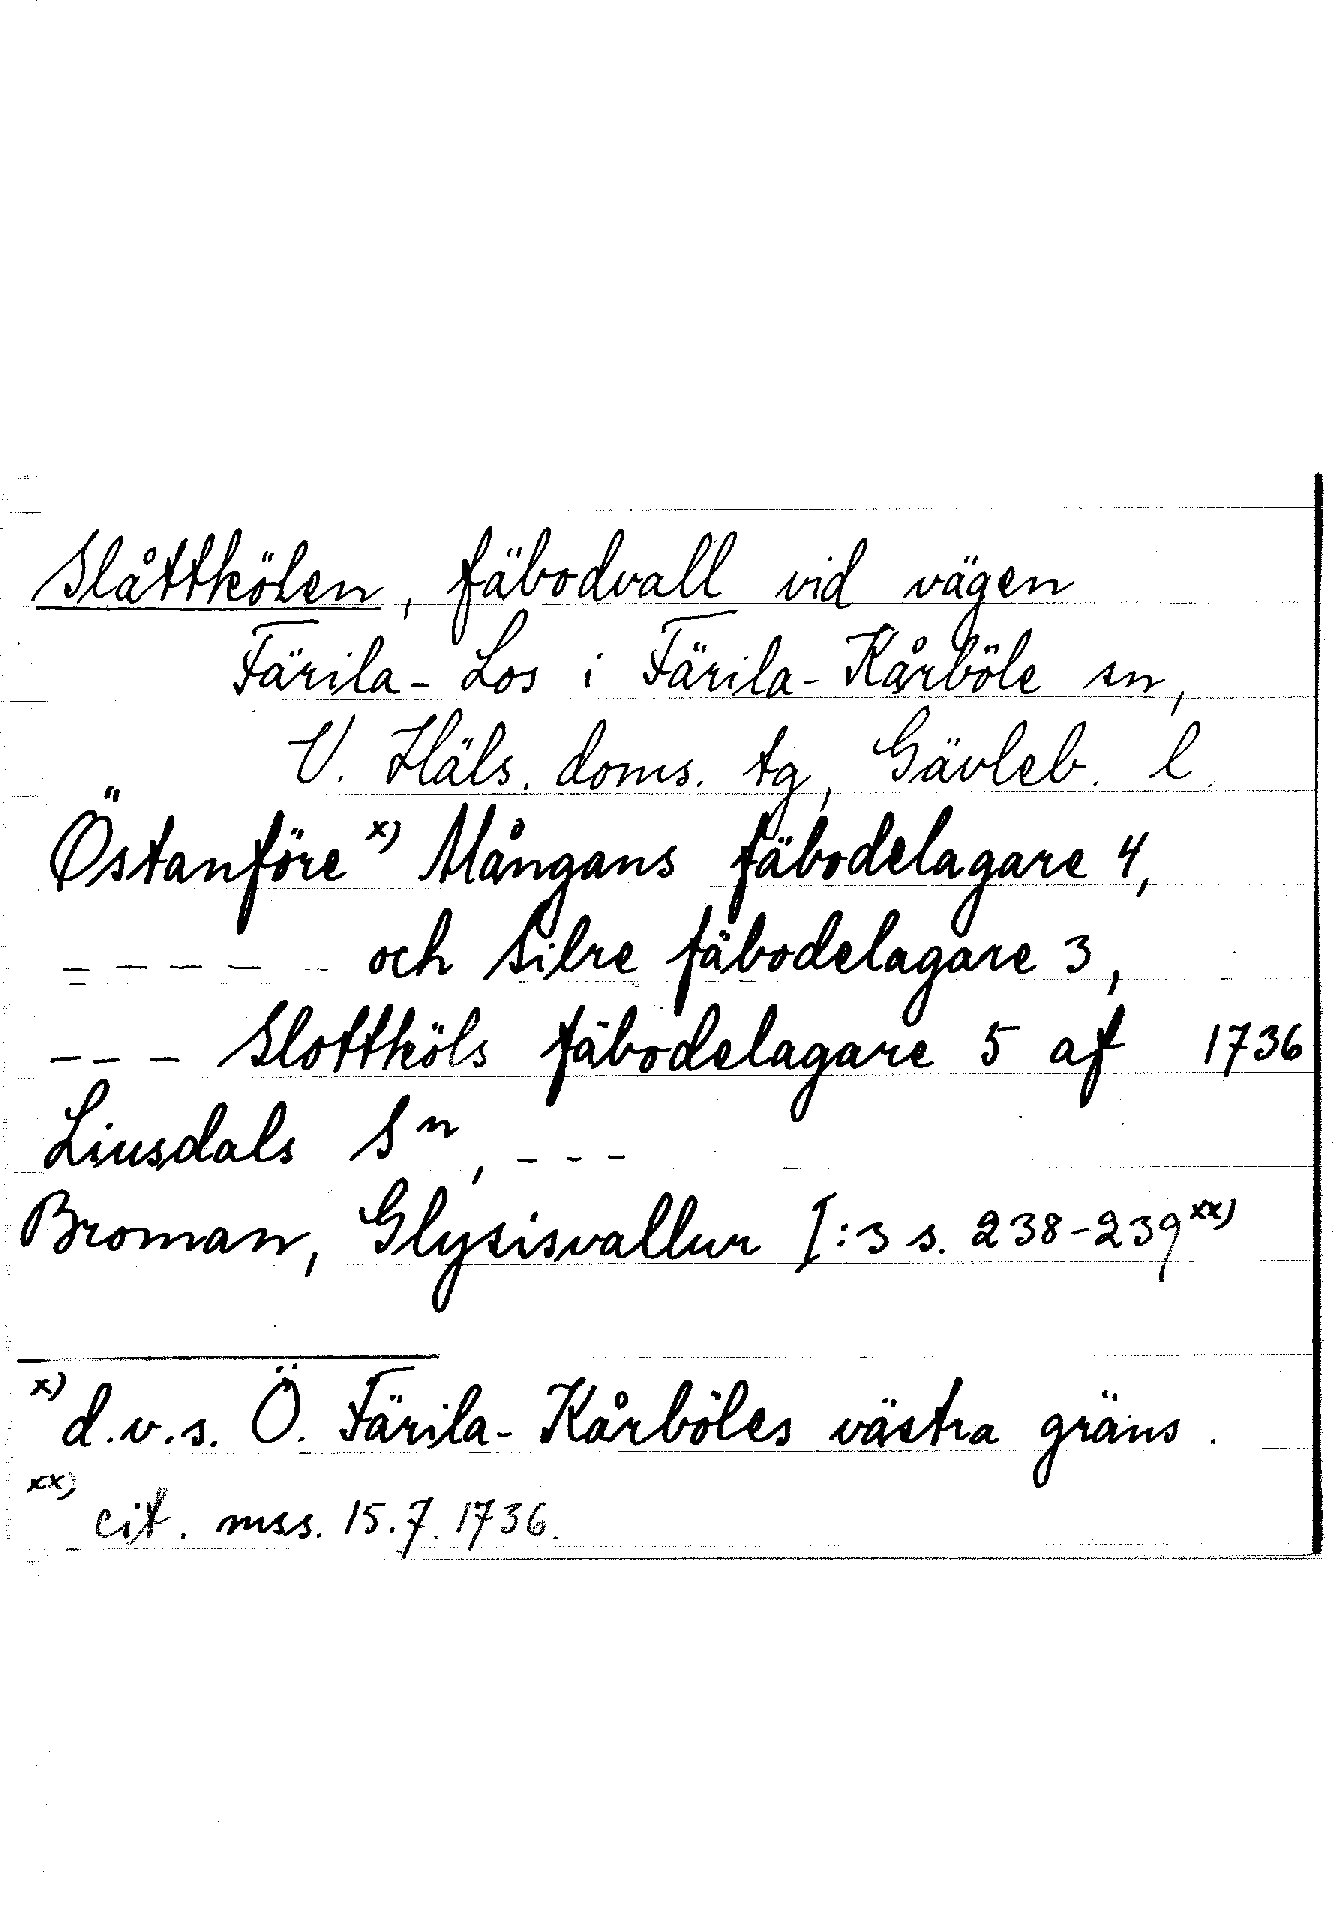 Slåttkölen, fäbodvall vid vägen
Färila-Los i Färila-Kårböle sn,
V. Häls. doms. tg, Gävleb. l.
Östanföre x) Mångans fäbodelagare 4,
- - - - - och Silre fäbodelagare 3,
- - - Slottköls fäbodelagare 5 af 1736
Liusdals Sn, - - -
Broman, Glysisvallur I:3 s. 238-239 xx)
x) d.v.s. Ö. Färila-Kårböles västra gräns.
xx) cit. mss. 15.7.1736.